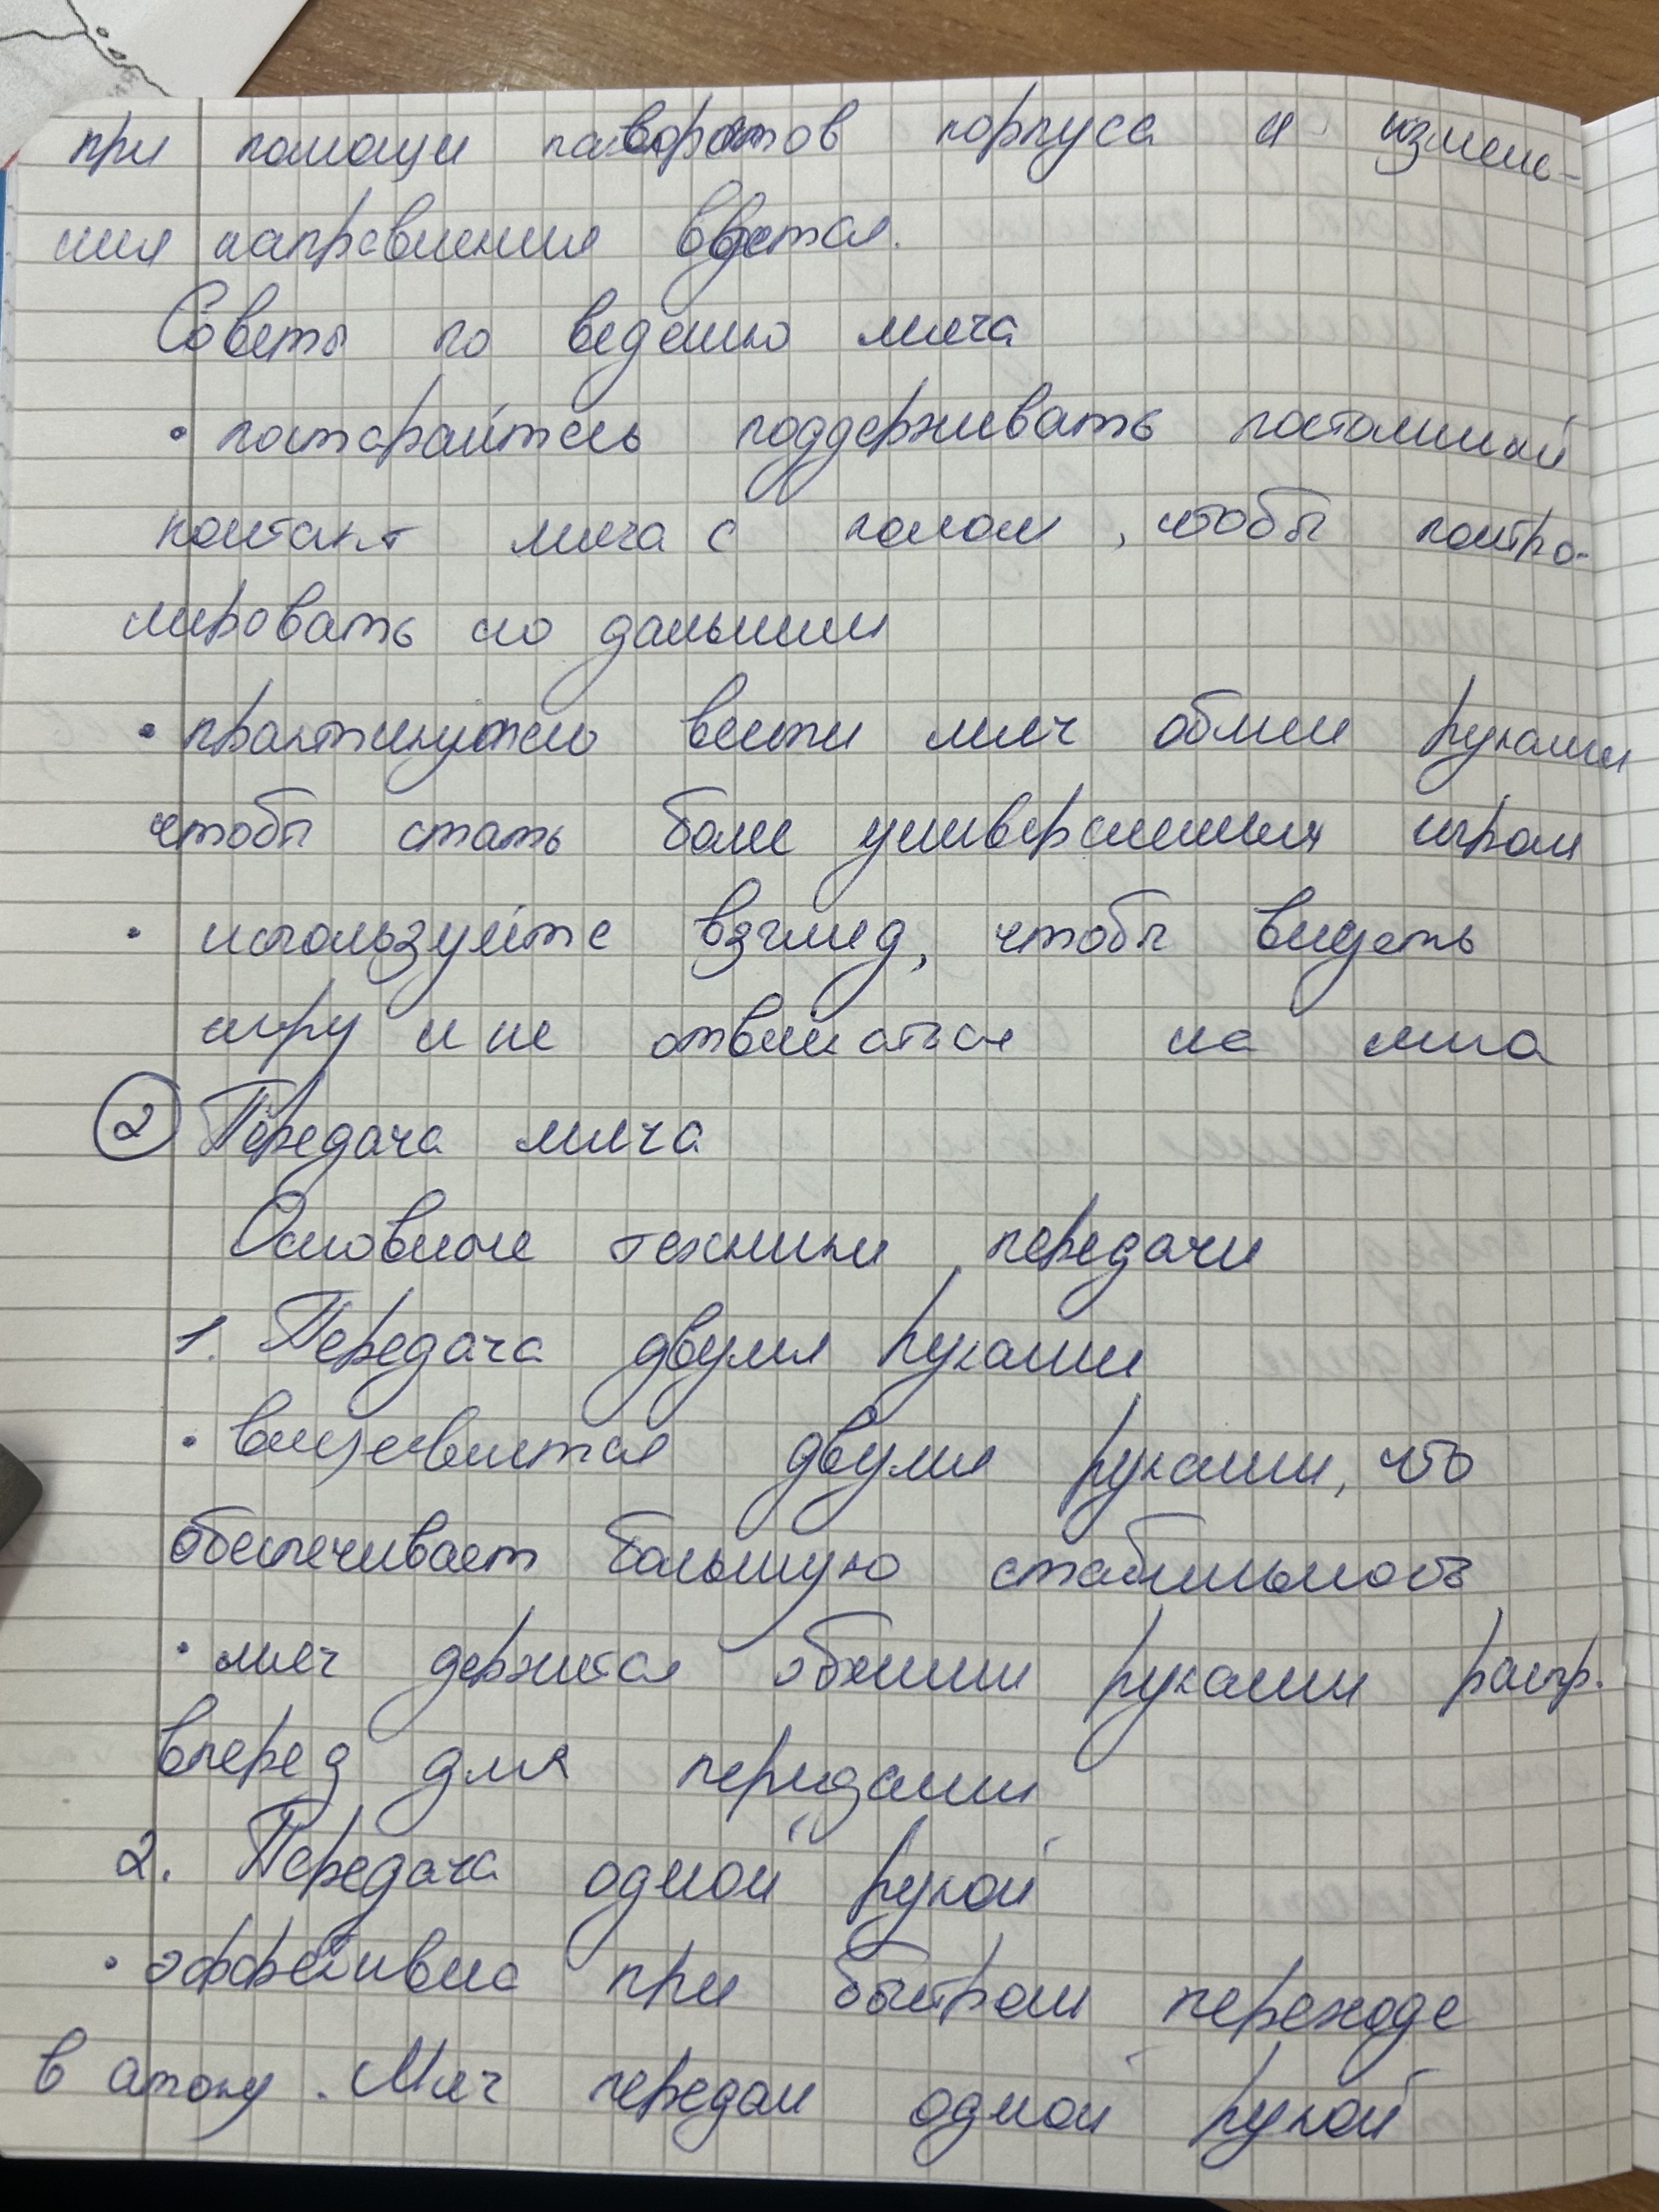 при помощи поворотов корпуса и измене-
ния направления
Советы по ведению мяча
• постарайтесь поддерживать постоянный
контакт мяча с полом, чтобы контро-
лировать его
• вести мяч обеми руками
чтобы стать более универсальным игроком
• используйте взгляд, чтобы видеть
игру и не отвлекаться на мяча
② Передача мяча
Основные техники передачи
1. Передача двумя руками
• двумя руками, что
обеспечивает большую стабильность
• мяч держится обеими руками распр.
вперед для передачи
2. Передача одной рукой
• эффективна при быстром переходе
в атаку. Мяч передаи одной рукой